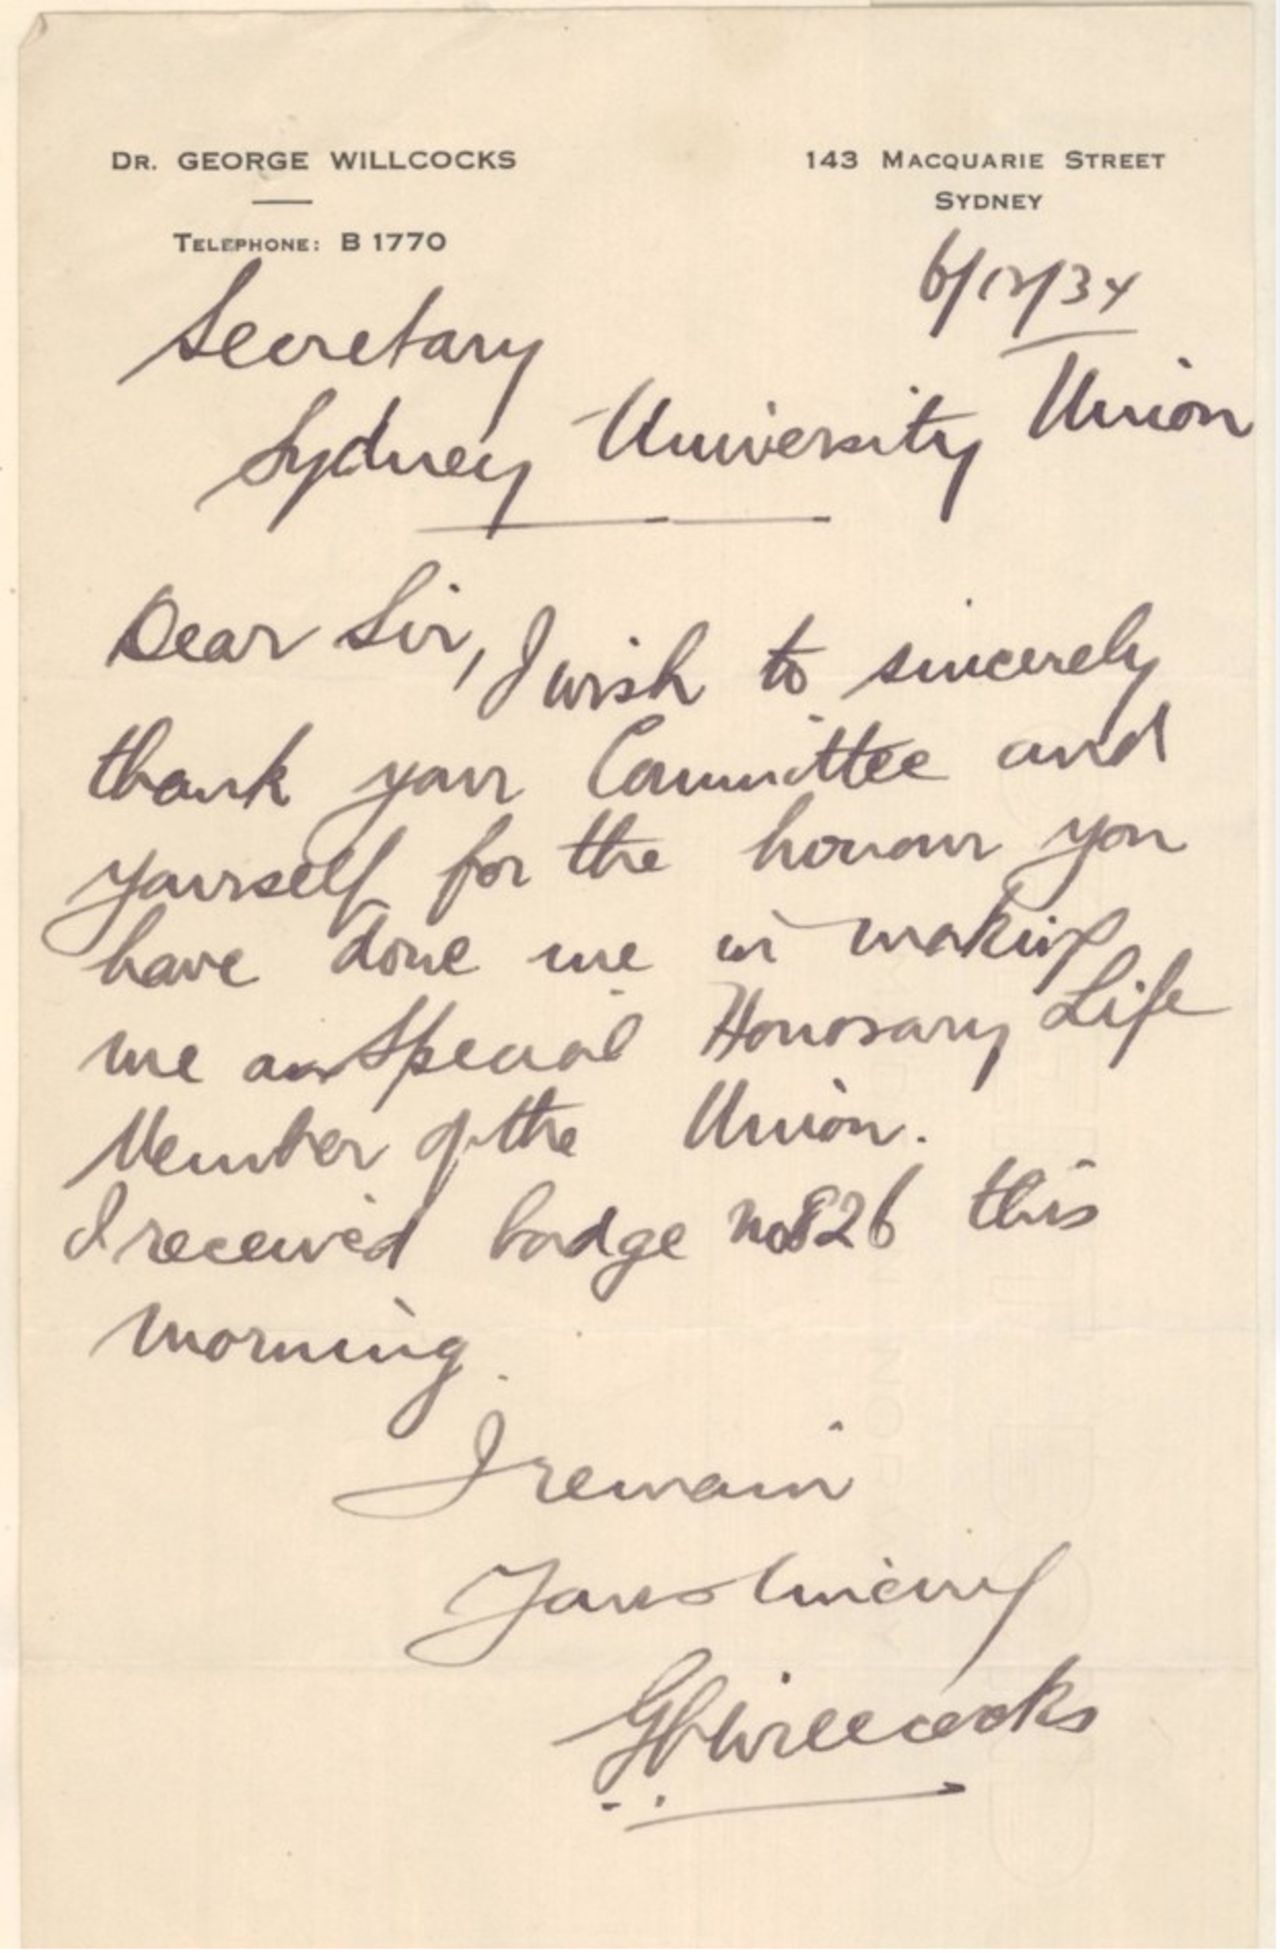 DR. GEORGE WILLCOCKS
143 MACQUARIE STREET
SYDNEY
TELEPHONE: B 1770
6/12/34
Secretary
Sydney University Union
Dear Sir, I wish to sincerely
thank your Committee and
yourself for the honour you
have done me in making
me a Special Honorary Life
Member of the Union.
I received badge no 826 this
morning.
I remain
Yours sincerely
Willcocks